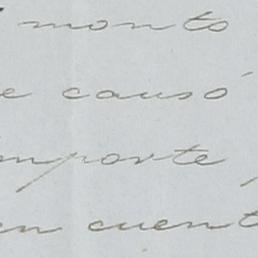 monto
e causó
mporte,
en cuent